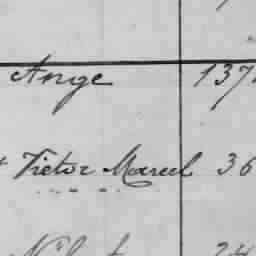 Ange 137
Victor Marcel 36